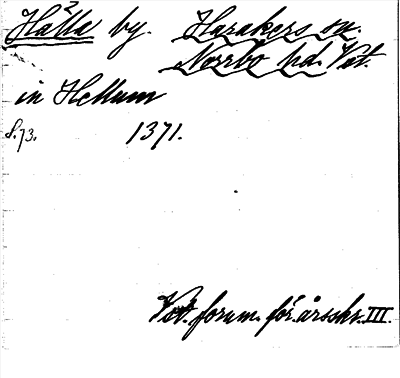 Hälla by. Harakers sn.
Norrbo hd. Vst.
in Hellum
S.73. 1371.
Vst. fornm. för. årsskr. III.